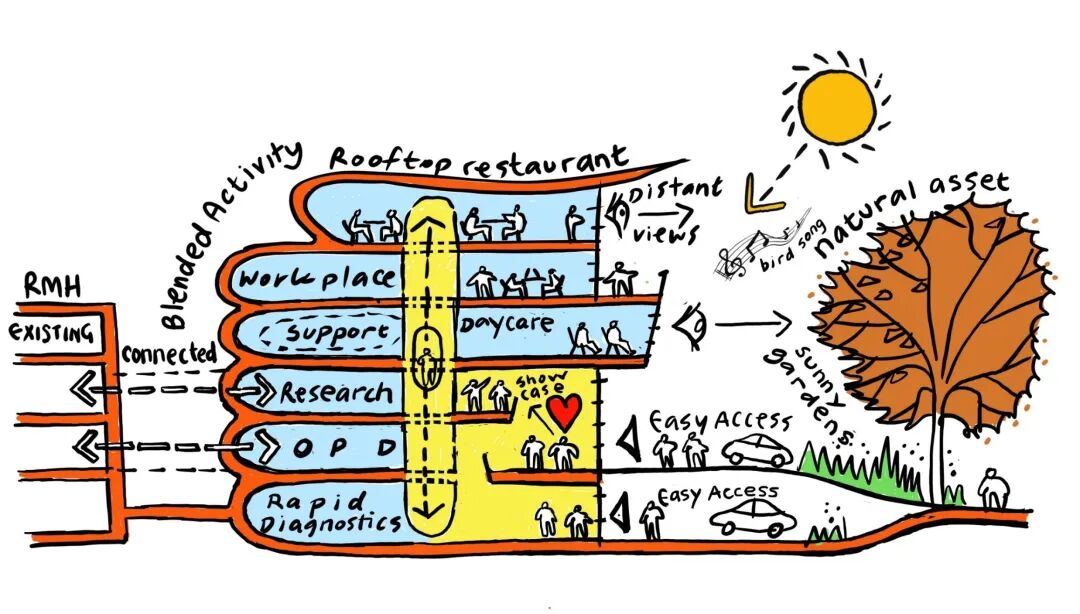 Blended Activity
Rooftop restaurant
Distant
views
bird song
natural asset
RMH
EXISTING
connected
Workplace
Support
Daycare
Research
Show
case
OPD
Rapid
Diagnostics
Easy Access
Easy Access
sunny
gardens